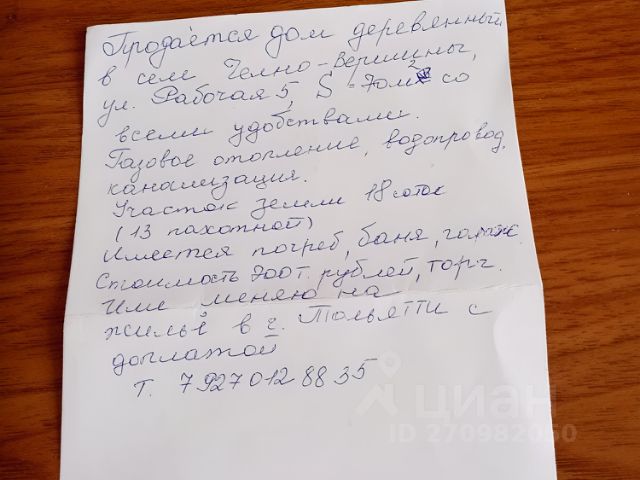 Продаётся дом деревянный
в селе Челно-Вершины,
ул. Рабочая 5, S - 70м² со
всеми удобствами.
Газовое отопление, водопровод,
канализация.
Участок земли 18 соток
(13 пахотной)
Имеется погреб, баня, гараж.
Стоимость 700т. рублей, торг.
Или меняю на
жильё в г. Тольятти с
доплатой
т. 7 927 012 88 35
циан
ID 270982060